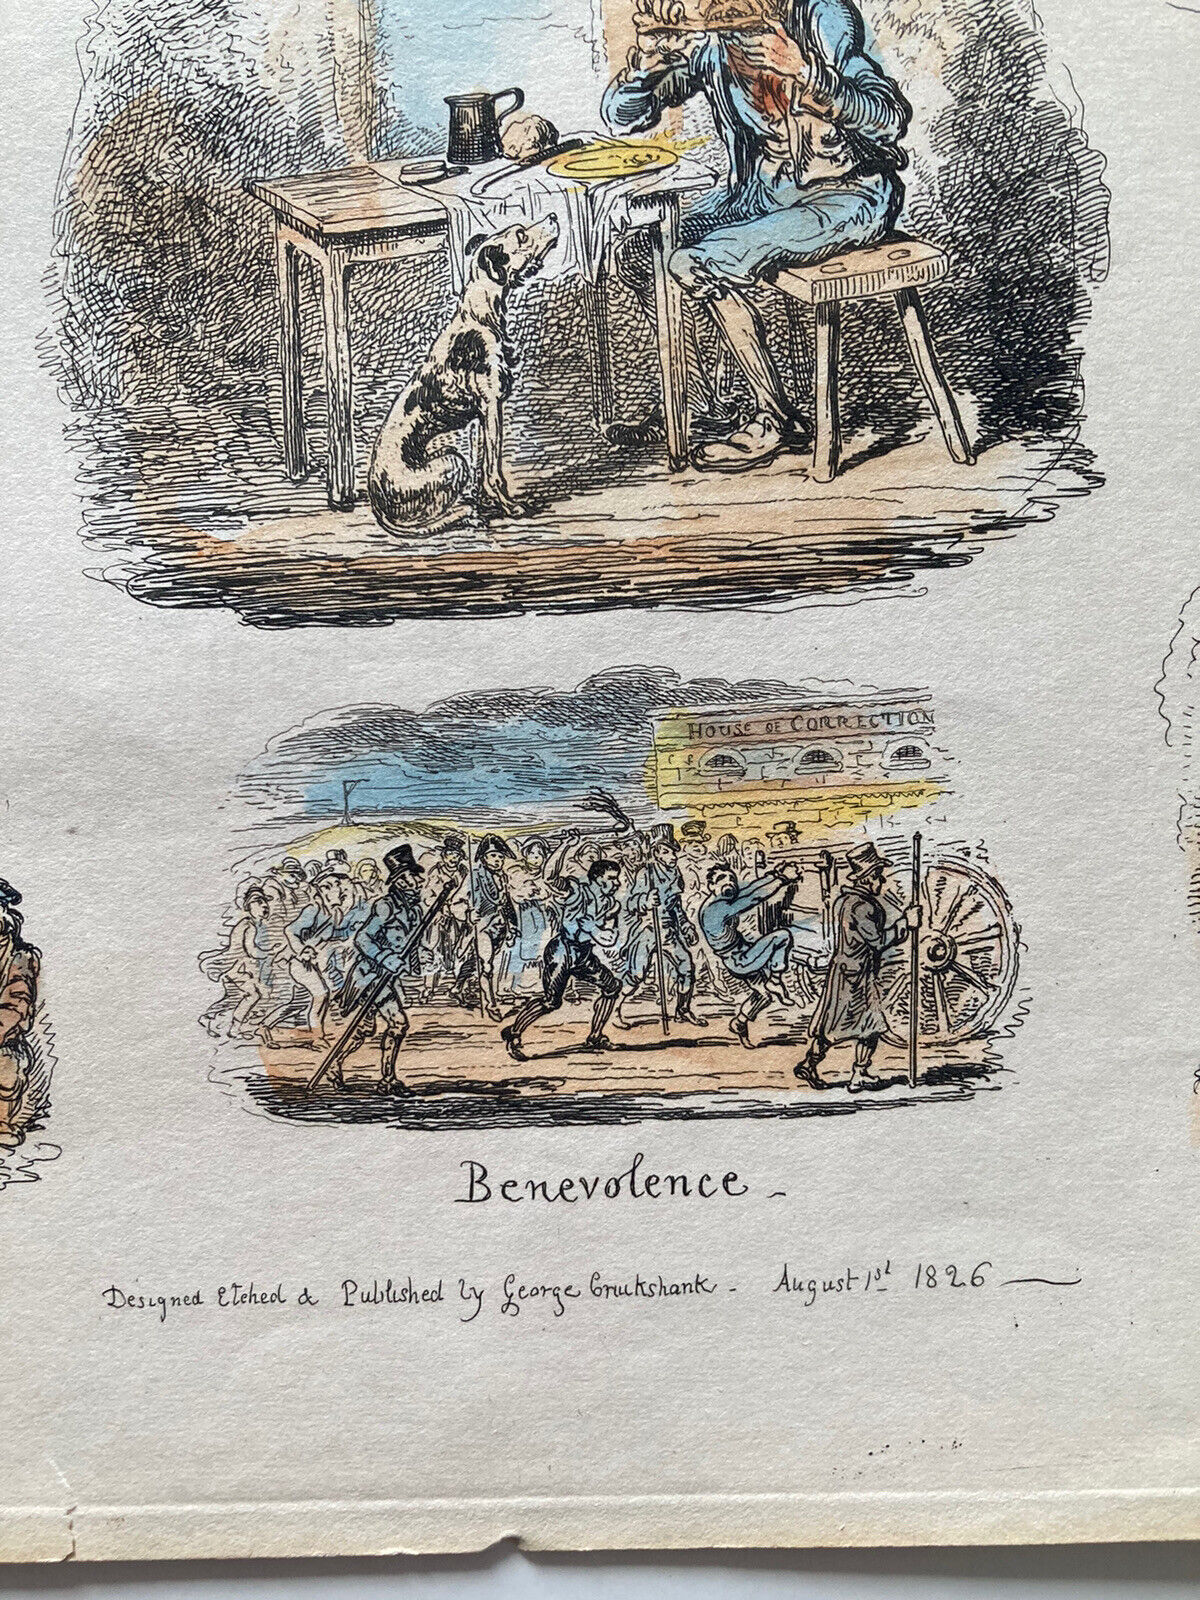 HOUSE OF CORRECTION
Benevolence -
Designed Etched & Published by George Cruikshank - August 1st 1826